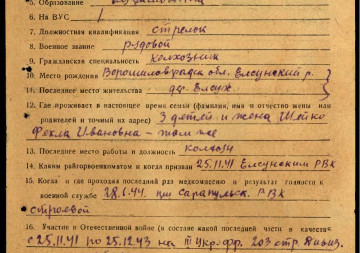 5. Образование
6. На ВУС 1
7. Должностная квалификация стрелок
8. Военное звание рядовой
9. Гражданская специальность колхозник
10. Место рождения Ворошиловградск обл. Елсунский р.
11. Последнее место жительства
12. Где проживает в настоящее время семья (фамилия, имя и отчество жены или
родителей и точный их адрес) 3 детей и жена Шейко
Фекла Ивановна – там же
13. Последнее место работы и должность колхоз
14. Каким райгорвоенкоматом и когда призван 25.11.41 Елсунским РВК
15. Когда и где проходил последний раз медкомиссию и результат годности к
военной службе 28.6.44. Сарапульск. РВК
строевой
16. Участие в Отечественной войне (в составе какой последней части в качестве
с 25.11.41 по 25.12.43 на Укр. фр. 203 стр. Дивиз.